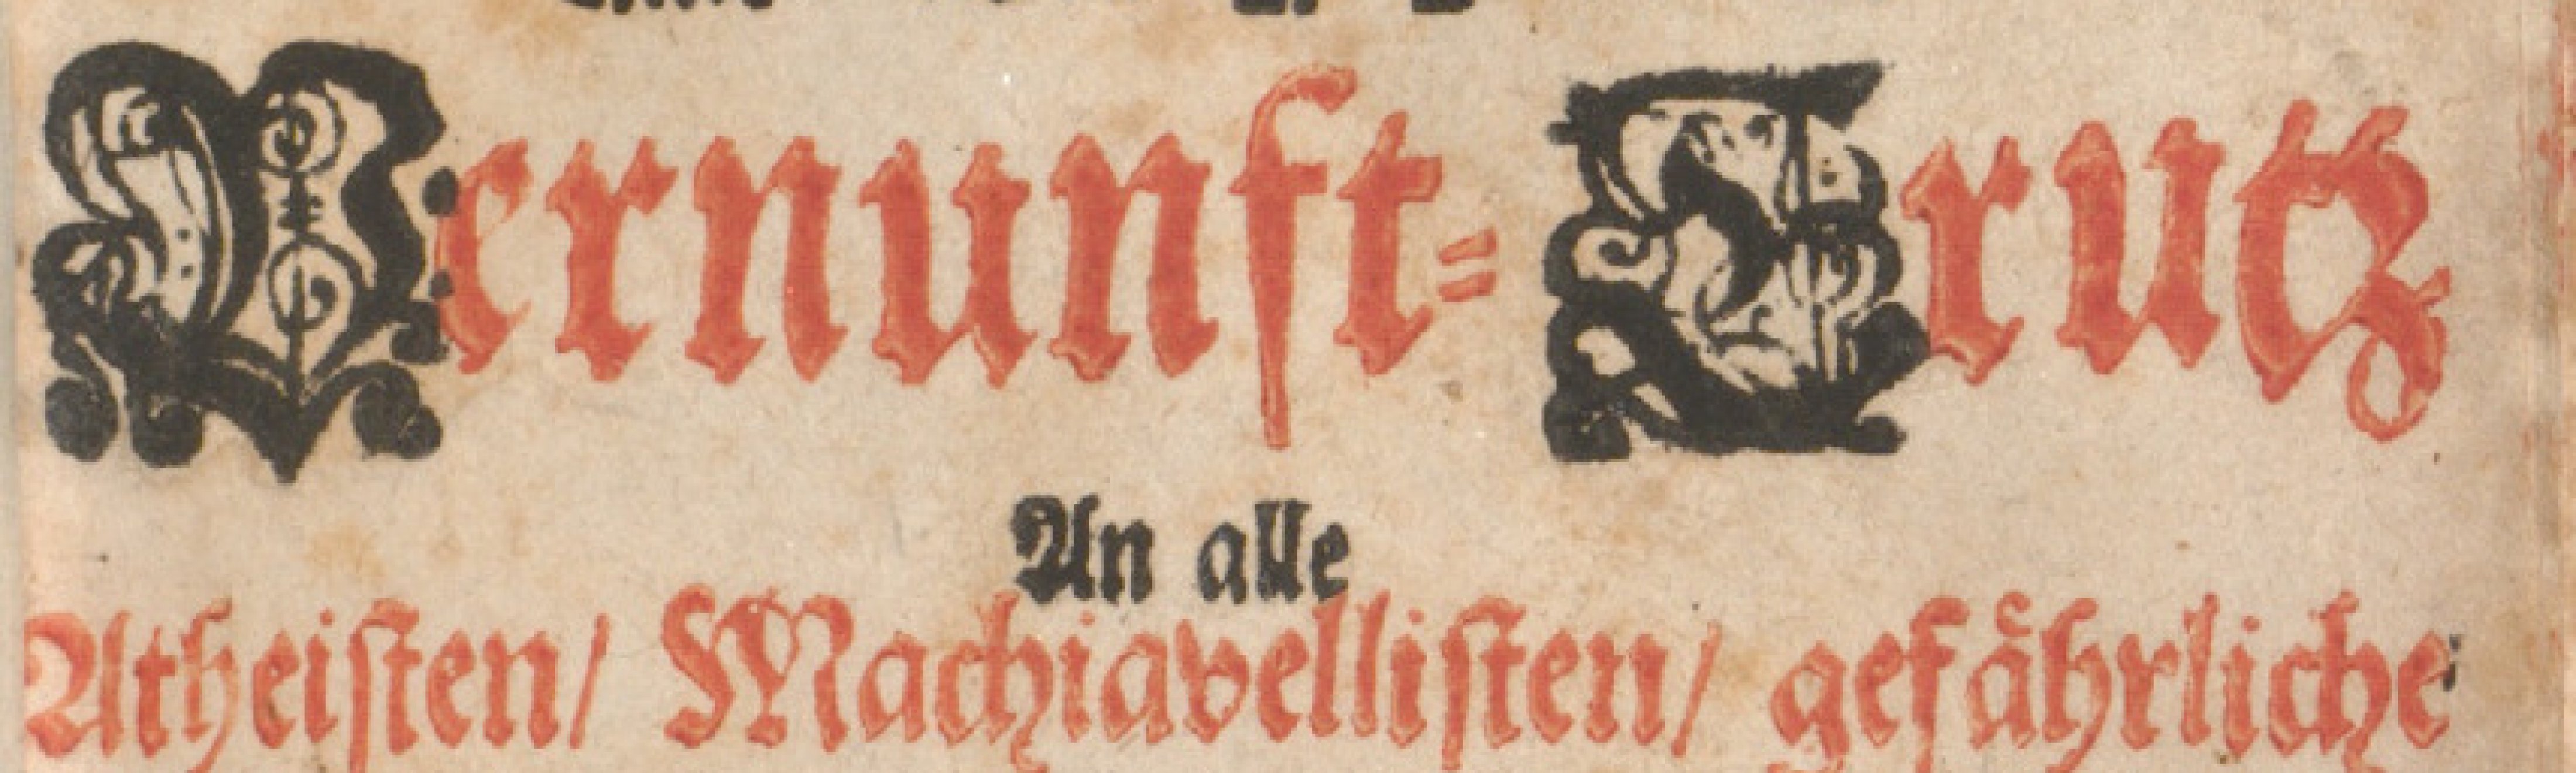 Vernunft⸗ Trutz
An alle
Atheiſten/ Machiavelliſten/ gefaͤhrliche